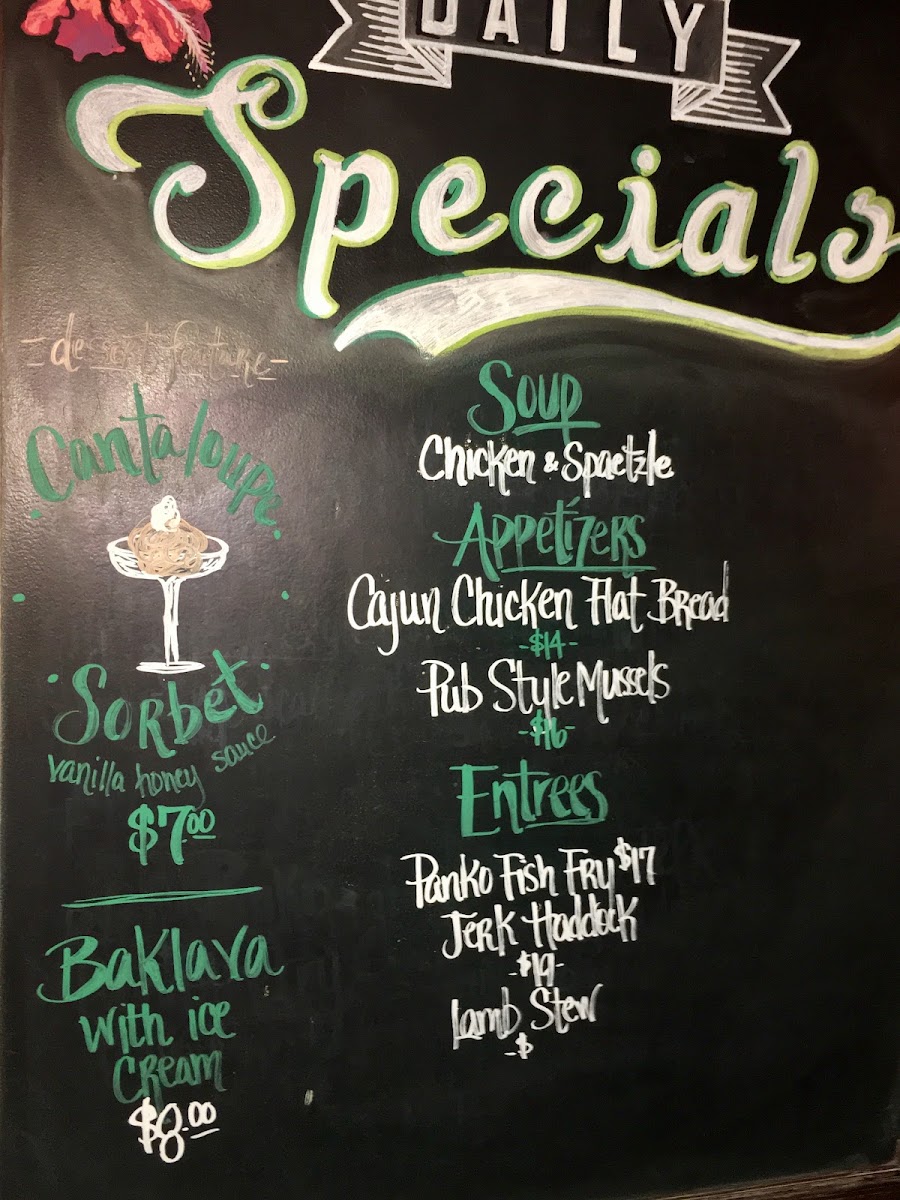 DAILY
Specials
-dessert feature-
Cantaloupe
Sorbet
vanilla honey sauce
$7.00
Baklava
with ice
cream
$8.00
Soup
Chicken & Spaetzle
Appetizers
Cajun Chicken Flat Bread
-$14-
Pub Style Mussels
-$16-
Entrees
Panko Fish Fry $17
Jerk Haddock
-$19-
Lamb Stew
-$